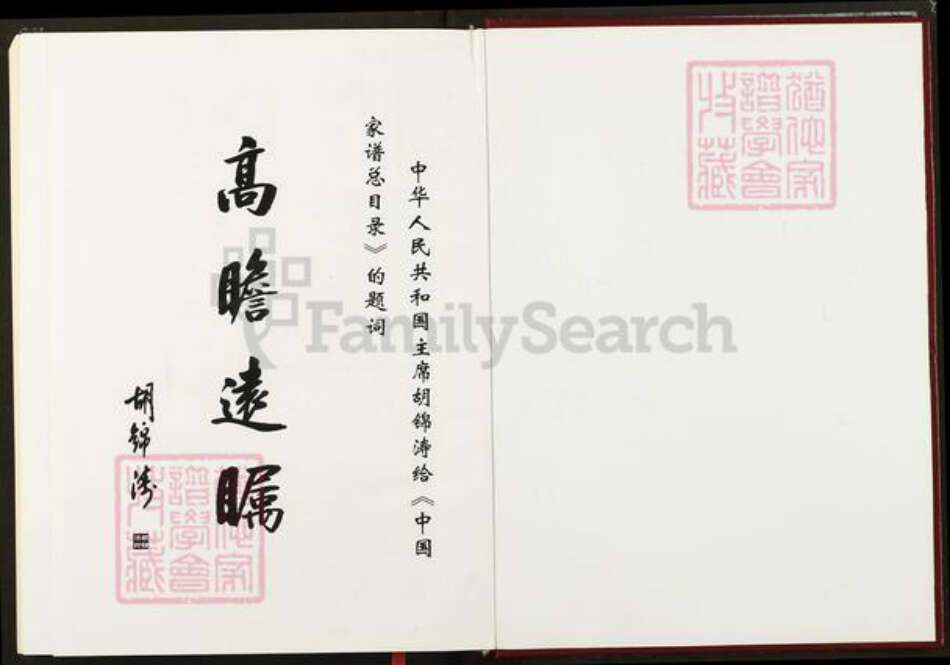 猶他家譜學會收藏
中华人民共和国主席胡锦涛给《中国
家谱总目录》的题词
高瞻遠瞩
胡锦涛
猶他家譜學會收藏
FamilySearch